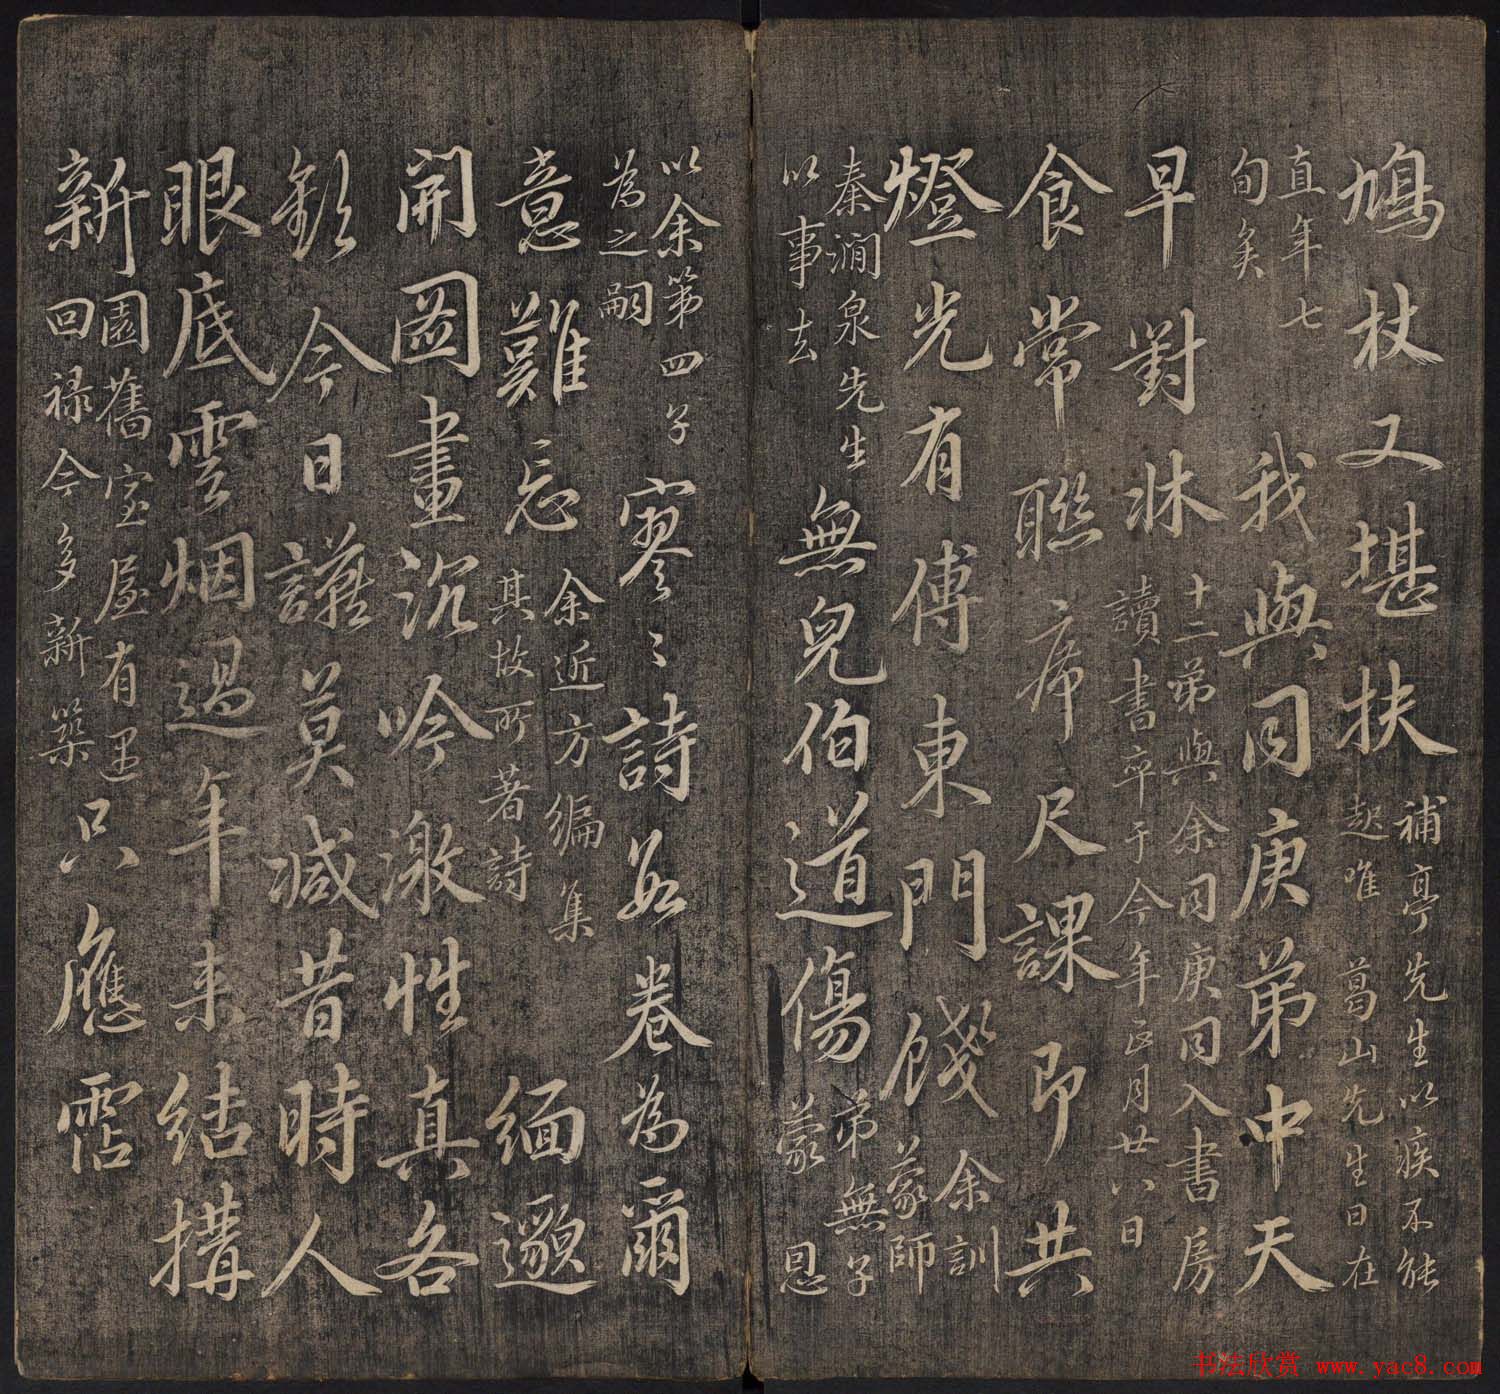 鳩杖又堪扶
補亭先生以疾不能
起唯葛山先生日在
直年七
旬矣
我與同庚弟中天
早對牀
十二弟與余同庚同入書房
讀書卒于今年正月廿八日
食常聯席尺課即共
燈光有傅東門餞
余訓
蒙師
秦澗泉先生
以事去
無兒伯道傷
弟無子
蒙恩
以余第四子
為之嗣
寥〻詩數卷為爾
意難忘
余近方編集
其故所著詩
緬邈
開圖畫沉吟激性真各
今日莫減昔時人
眼底雲烟過年来結搆
新
園舊室屋有遇
回禄今多新築
只應霑
书法欣赏 www.yac8.com